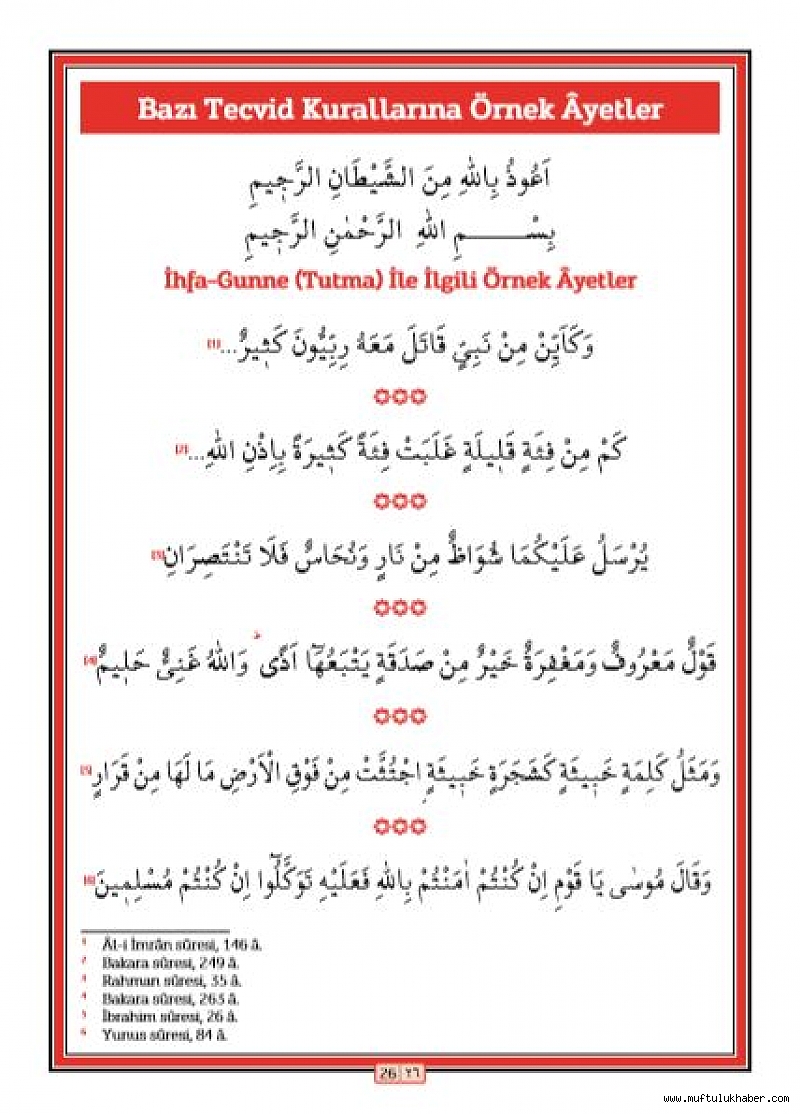 Bazı Tecvid Kurallarına Örnek Âyetler
اَعُوذُ بِاللّٰهِ مِنَ الشَّيْطَانِ الرَّجٖيمِ
بِسْــــــمِ اللّٰهِ الرَّحْمٰنِ الرَّحٖيمِ
İhfa-Gunne (Tutma) İle İlgili Örnek Âyetler
وَكَاَيِّنْ مِنْ نَبِيٍّ قَاتَلَ مَعَهُ رِبِّيُّونَ كَثٖيرٌ...[1]
كَمْ مِنْ فِئَةٍ قَلٖيلَةٍ غَلَبَتْ فِئَةً كَثٖيرَةً بِاِذْنِ اللّٰهِ...[2]
يُرْسَلُ عَلَيْكُمَا شُوَاظٌ مِنْ نَارٍ وَنُحَاسٌ فَلَا تَنْتَصِرَانِ[3]
قَوْلٌ مَعْرُوفٌ وَمَغْفِرَةٌ خَيْرٌ مِنْ صَدَقَةٍ يَتْبَعُهَٓا اَذًى ۜ وَاللّٰهُ غَنِىٌّ حَلٖيمٌ[4]
وَمَثَلُ كَلِمَةٍ خَبٖيثَةٍ كَشَجَرَةٍ خَبٖيثَةٍ اجْتُثَّتْ مِنْ فَوْقِ الْاَرْضِ مَا لَهَا مِنْ قَرَارٍ[5]
وَقَالَ مُوسٰى يَا قَوْمِ اِنْ كُنْتُمْ اٰمَنْتُمْ بِاللّٰهِ فَعَلَيْهِ تَوَكَّلُٓوا اِنْ كُنْتُمْ مُسْلِمٖينَ[6]
1 Âl-i İmrân sûresi, 146 â.
2 Bakara sûresi, 249 â.
3 Rahman sûresi, 35 â.
4 Bakara sûresi, 263 â.
5 İbrahim sûresi, 26 â.
6 Yunus sûresi, 84 â.
26 ٢٦
www.muftulukhaber.com